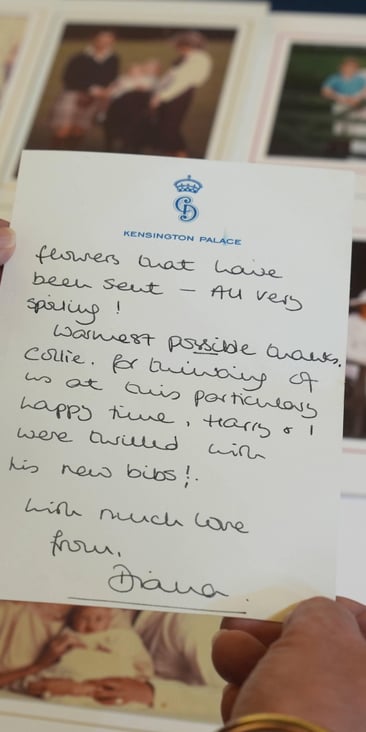 KENSINGTON PALACE
flowers that have
been sent – All very
spoiling !
Warmest possible thanks,
Collie, for thinking of
us at this particulary
happy time, Harry & I
were thrilled with
his new bibs!.
with much love
from,
Diana.